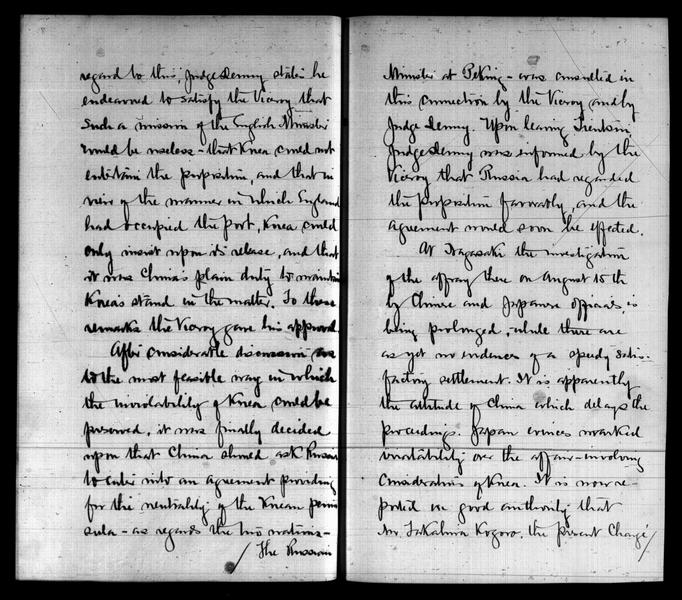 regard to this, Judge Denny states he
endeavored to satisfy the Viceroy that
such a mission of the English Minister
would be useless - that Korea could not
entertain the proposition, and that in
view of the manner in which England
had occupied the port, Korea could
only insist upon its release, and that
it was China's plain duty to maintain
Korea's stand in the matter. To these
remarks the Viceroy gave his approval.
After considerable discussion as
to the most feasible way in which
the inviolability of Korea could be
preserved, it was finally decided
upon that China should ask Russia
to enter into an agreement providing
for the neutrality of the Korean penin
sula - as regards the two nations -
/ The Russian
Minister at Peking - was consulted in
this connection by the Viceroy and by
Judge Denny. Upon leaving Tientsin,
Judge Denny was informed by the
Viceroy that Russia had regarded
the proposition favorably, and the
agreement would soon be effected.
At Nagasaki the investigation
of the affray there on August 15th
by Chinese and Japanese officials, is
being prolonged, while there are
as yet no evidences of a speedy satis-
factory settlement. It is apparently
the attitude of China which delays the
proceedings. Japan evinces marked
over the affair - involving
considerations of Korea. It is now re-
ported on good authority that
Mr. Takahira Kogoro, the present Chargé /